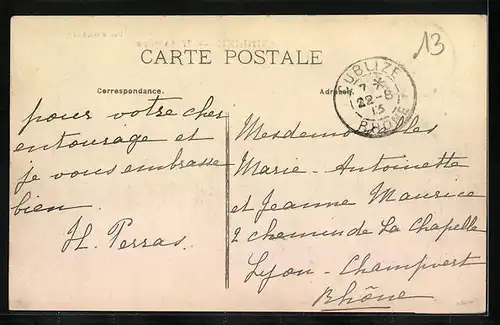 13
CARTE POSTALE
Correspondance.
Adresse.
UBLIZE
7 *
22 - 8
13
RHONE
pour votre cher
entourage et
je vous embrasse
bien
H. Perras.
Mesdemoiselles
Marie-Antoinette
et Jeanne Maurice
2 chemin de La Chapelle
Lyon - Champvert
Rhône